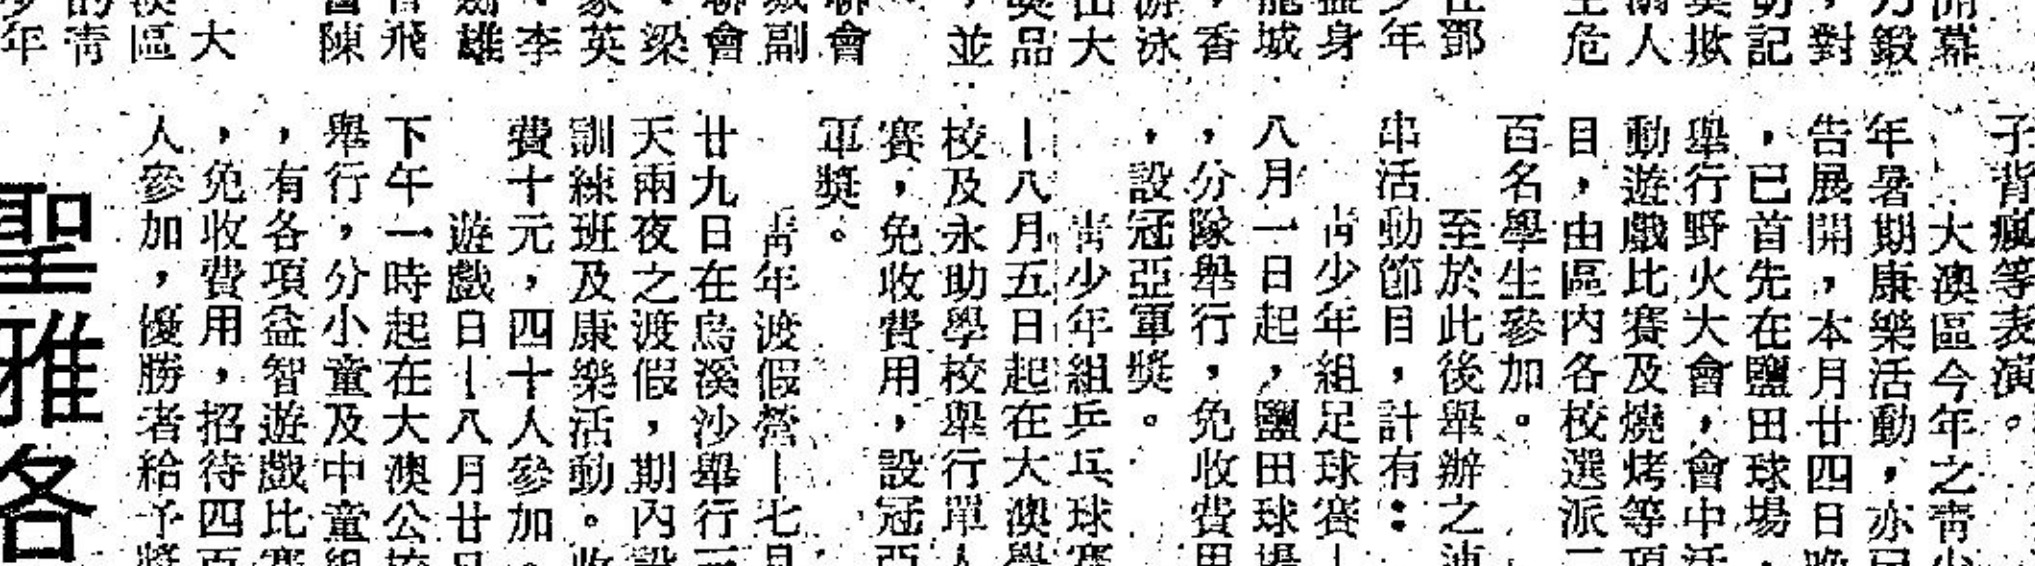 開幕
鍛
，對
記
人
危
鄧
年
身
龍城
，香
游泳
大
獎品
，並
聯會
副
會
梁
家英
，李
雄
飛
陳
大
澳區
的青
少年
子背瘋等表演。
大澳區今年之青少
年暑期康樂活動，亦同
告展開，本月廿四日晚
，已首先在鹽田球場，
舉行野火大會，會中活
動遊戲比賽及燒烤等項
目，由區內各校選派
百名學生參加。
至於此後舉辦之連
串活動節目，計有：
青少年組足球賽—
八月一日起，鹽田球場
，分隊舉行，免收費用
，設冠亞軍獎。
青少年組乒乓球賽
—八月五日起在大澳學
校及永助學校舉行單人
賽，免收費用，設冠亞
軍獎。
青年渡假營—七月
廿九日在烏溪沙舉行
天兩夜之渡假，期內設
訓練班及康樂活動。收
費十元，四十人參加。
遊戲日—八月廿
下午一時起在大澳公校
舉行，分小童及中童組
，有各項益智遊戲比賽
，免收費用，招待四百
人參加，優勝者給予獎
聖雅各